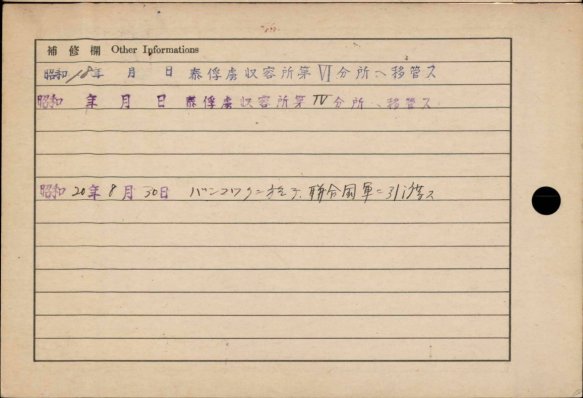 補修欄 Other Informations
昭和18年 月 日 泰俘虜収容所第VI分所ヘ移管ス
昭和 年 月 日 泰俘虜収容所第IV分所ヘ移管ス
昭和20年8月30日 バンコックニ於テ聯合国軍ニ引渡ス